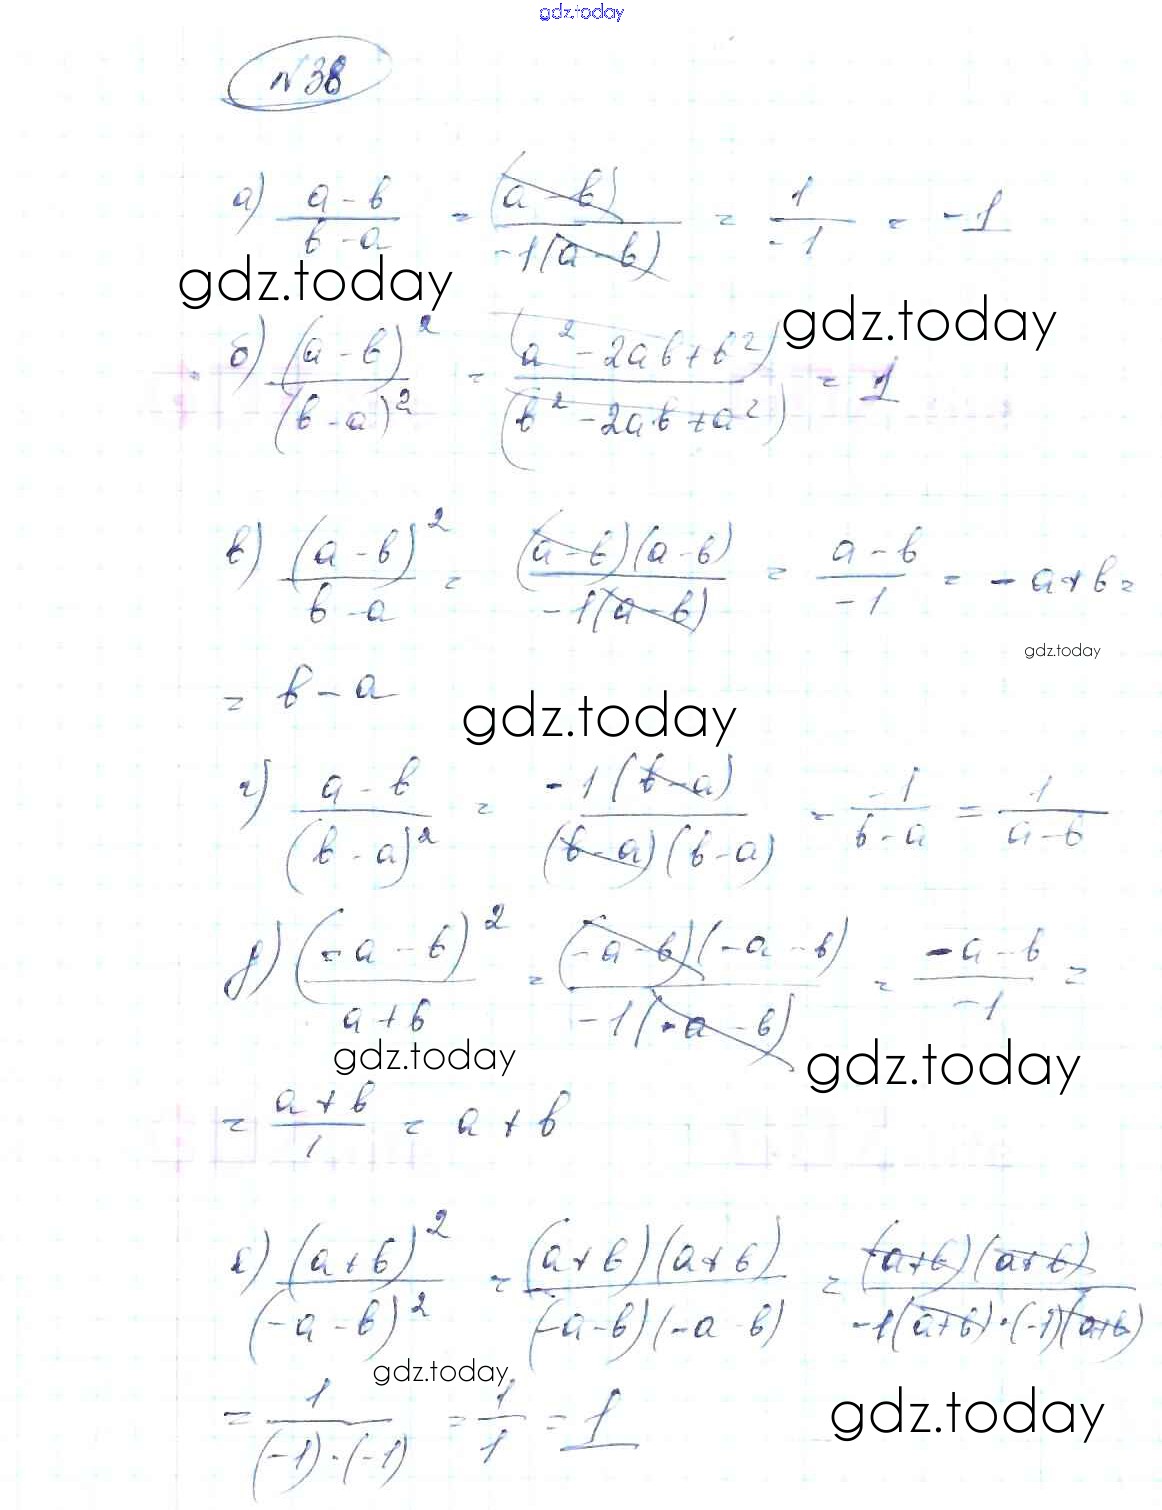 gdz.today
№38
а) (a - b)/(b - a) = (a - b)/(-1(a - b)) = 1/-1 = -1
gdz.today
gdz.today
б) (a - b)²/(b - a)² = (a² - 2ab + b²)/(b² - 2ab + a²) = 1
в) (a - b)²/(b - a) = (a - b)(a - b)/(-1(a - b)) = (a - b)/-1 = -a + b =
gdz.today
= b - a
gdz.today
г) (a - b)/(b - a)² = -1(b - a)/((b - a)(b - a)) = -1/(b - a) = 1/(a - b)
д) (-a - b)²/(a + b) = (-a - b)(-a - b)/(-1(-a - b)) = (-a - b)/-1 =
gdz.today
gdz.today
= (a + b)/1 = a + b
е) (a + b)²/(-a - b)² = (a + b)(a + b)/((-a - b)(-a - b)) = (a + b)(a + b)/(-1(a + b)·(-1)(a + b))
gdz.today
= 1/((-1)·(-1)) = 1/1 = 1
gdz.today